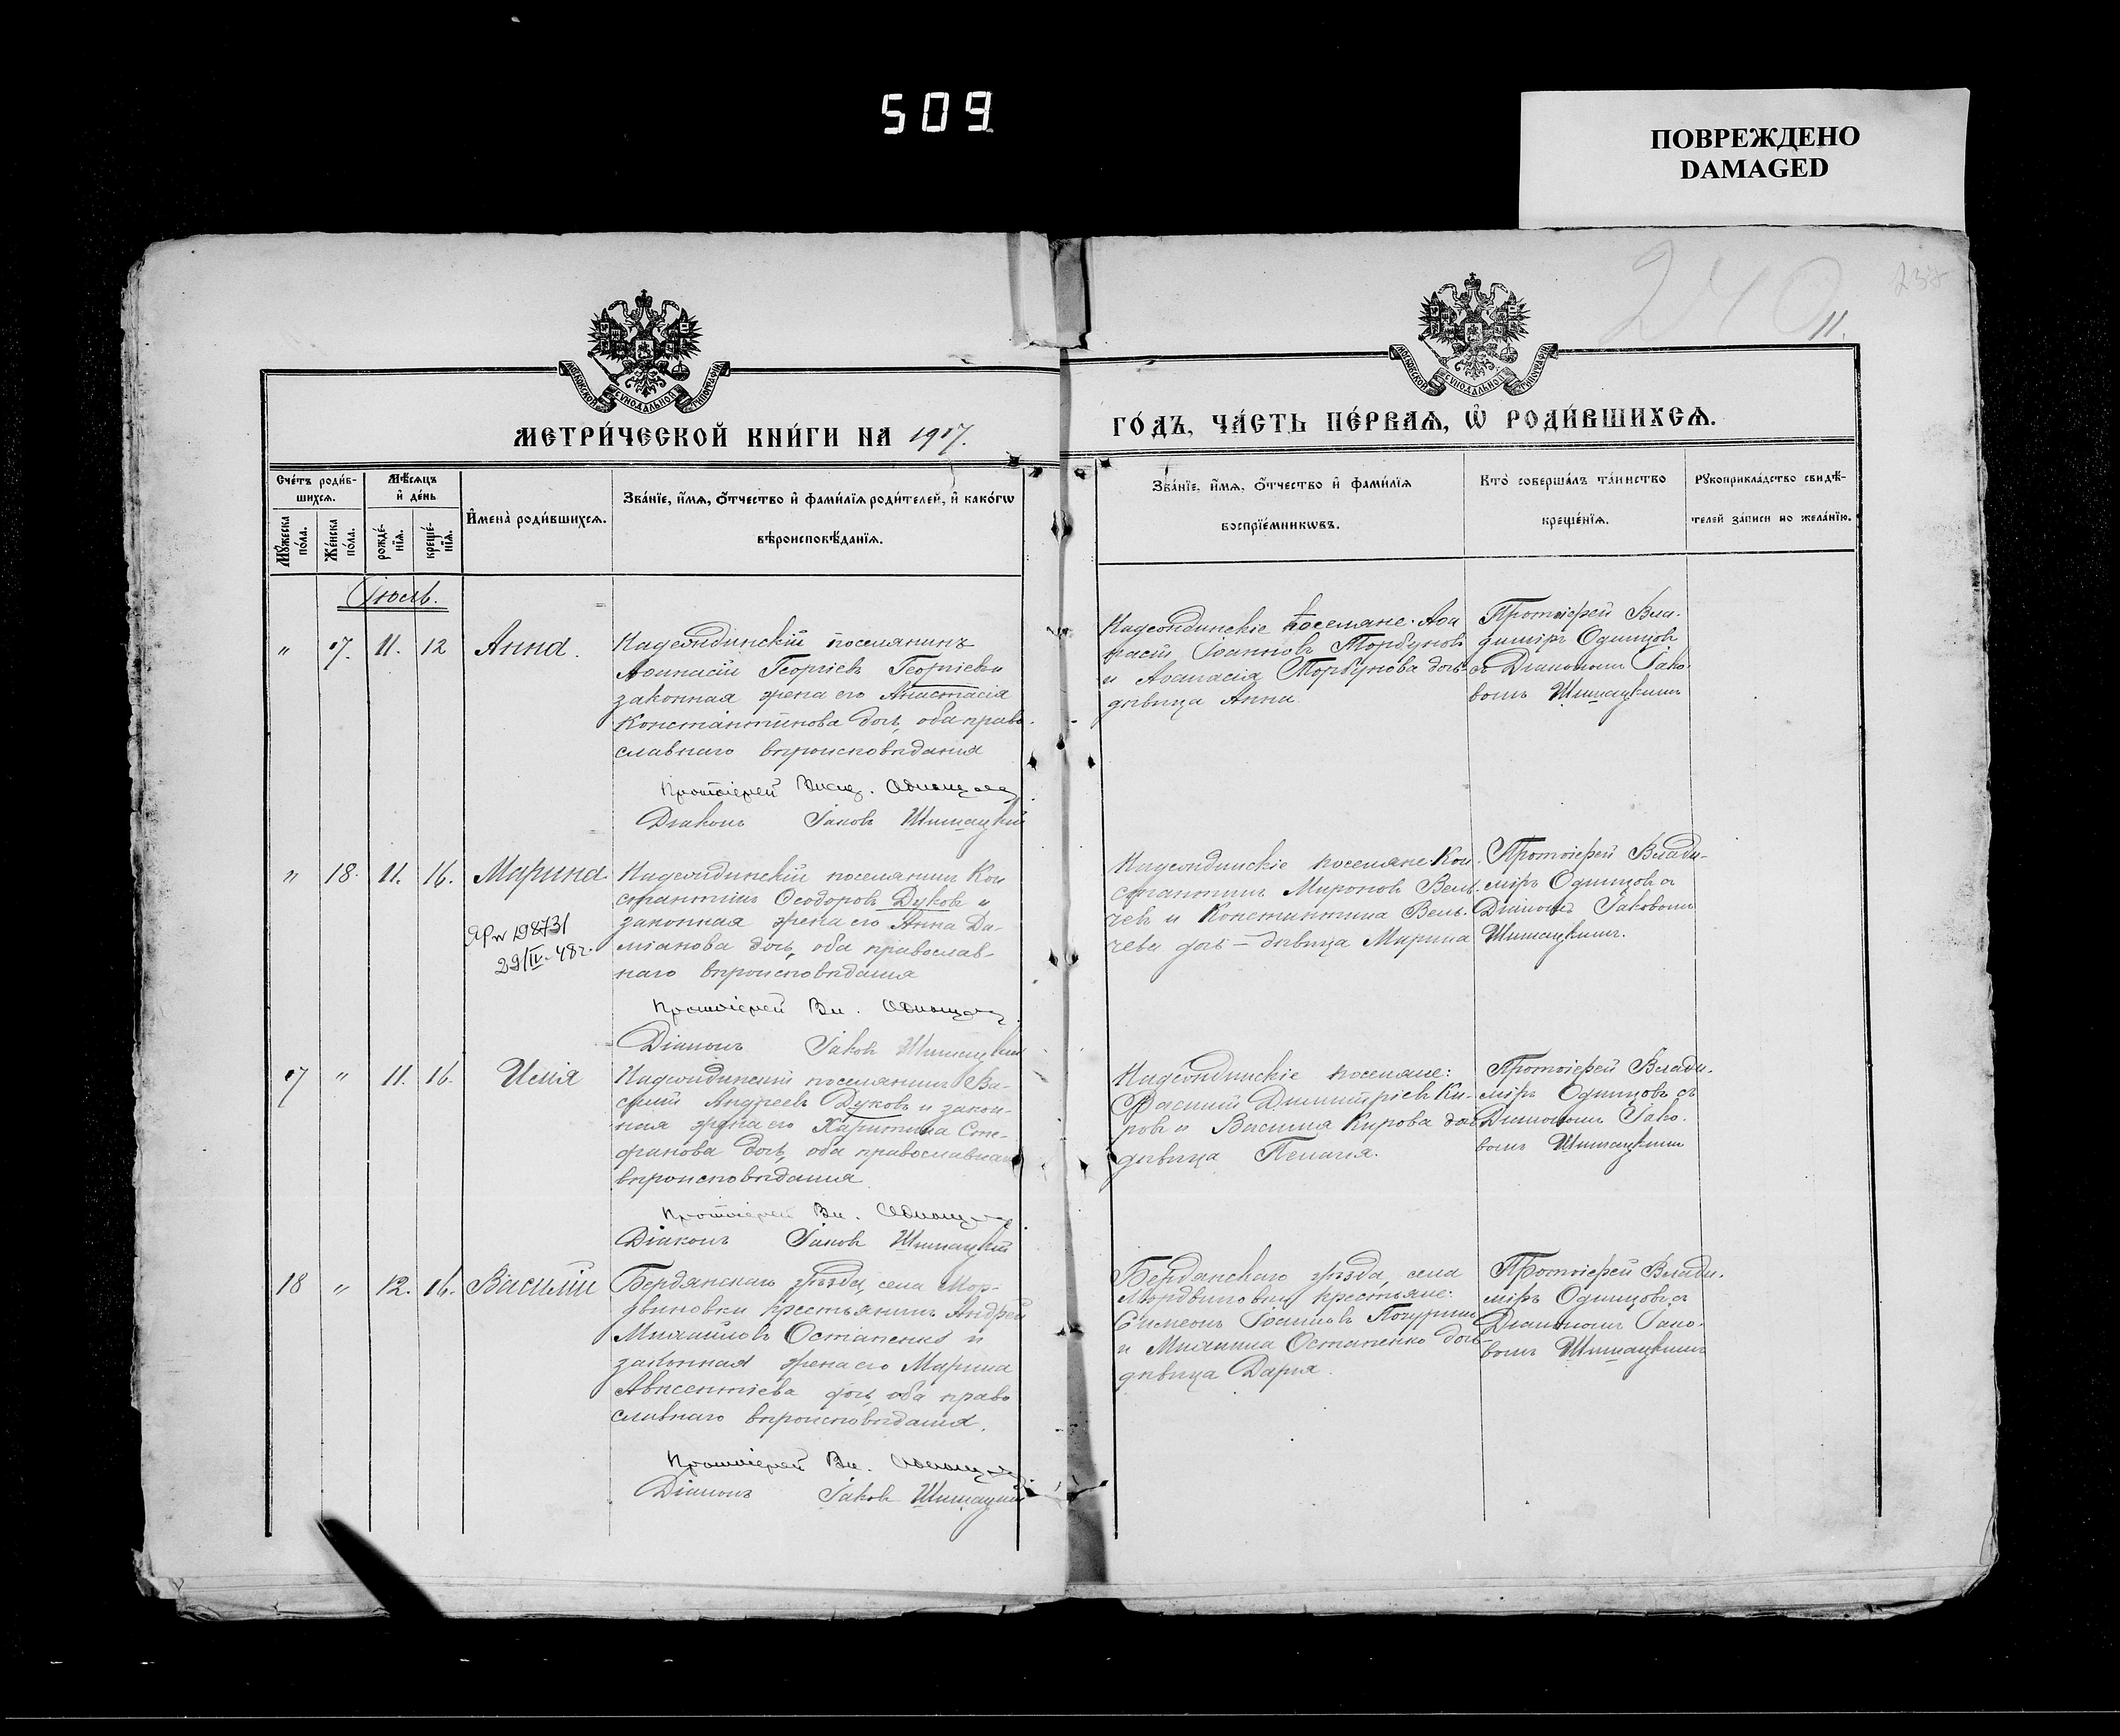 509
ПОВРЕЖДЕНО
DAMAGED
240
11.
МОСКОВСКОЙ СѴНОДАЛЬНОЙ ТИПОГРАФІИ
МОСКОВСКОЙ СѴНОДАЛЬНОЙ ТИПОГРАФІИ
МЕТРИ́ЧЕСКОЙ КНИ́ГИ НА 1917.
ГО́ДЪ, ЧА́СТЬ ПЕ́РВАѦ, Ѽ РОДИ́ВШИХСѦ.
Сче́тъ роди́в-
шихсѧ.
Мѣ́сѧцъ
и҆ де́нь
Мꙋ́жеска
по́ла.
Же́нска
по́ла.
рожде́-
нїѧ.
креще́-
нїѧ.
И҆мена̀ роди́вшихсѧ.
Зва́нїе, и҆́мѧ, ѻ҆́тчество и҆ фами́лїѧ роди́телей, и҆ како́гѡ
вѣроисповѣ́данїѧ.
Зва́нїе, и҆́мѧ, ѻ҆́тчество и҆ фами́лїѧ
воспрїе́мникѡвъ.
Кто̀ соверша́лъ та́инство
креще́нїѧ.
Рꙋкоприкла́дство свидѣ́-
телей за́писи по жела́нїю.
Іюль.
" 17. 11. 12 Анна.
поселянинъ
Аѳанасій Георгіевъ Георгіевъ
законная жена его Анастасія
Константинова дочь, оба право
славнаго вѣроисповѣданія
Протоіерей Влад. Одинцовъ
Діаконъ Іаковъ Шишацкій
поселяне: Аѳа
насій Іоанновъ Торбуновъ
и Аѳанасія Торбунова дочь-
дѣвица Анна
Протоіерей Вла-
диміръ Одинцовъ
съ Діакономъ Іако-
вомъ Шишацкимъ
" 18. 11. 16. Марина
198731
29/IV-48г.
поселянинъ Кон
стантинъ Ѳеодоровъ Дуковъ и
законная жена его Анна Да-
міанова дочь, оба православ-
наго вѣроисповѣданія
Протоіерей Вл. Одинцовъ
Діаконъ Іаковъ Шишацкій
поселяне: Кон
стантинъ Мироновъ Вель-
чевъ и Константина Вель-
чева дочь – дѣвица Марина
Протоіерей Влади-
міръ Одинцовъ съ
Діакономъ Іаковомъ
Шишацкимъ.
17 " 11. 16. Илія
поселянинъ Ва-
силій Андреевъ Дуковъ и закон-
ная жена его Харитина Сте-
фанова дочь, оба православнаго
вѣроисповѣданія
Протоіерей Вл. Одинцовъ
Діаконъ Іаковъ Шишацкій
поселяне:
Василій Димитріевъ Ки-
ровъ и Василія Кирова дочь
дѣвица Пелагія.
Протоіерей Влади-
міръ Одинцовъ съ
Діакономъ Іако-
вомъ Шишацкимъ
18 " 12. 16. Василій
Бердянскаго уѣзда, села Мор-
двиновки крестьянинъ Андрей
Михайловъ Остапенко и
законная жена его Марина
Авксентіева дочь, оба право
славнаго вѣроисповѣданія.
Протоіерей Вл. Одинцовъ
Діаконъ Іаковъ Шишацкій
Бердянскаго уѣзда, села
Мордвиновки крестьяне:
Симеонъ Іоанновъ
и Михаила Остапенко дочь-
дѣвица Дарія.
Протоіерей Влади-
міръ Одинцовъ съ
Діакономъ Іако-
вомъ Шишацкимъ